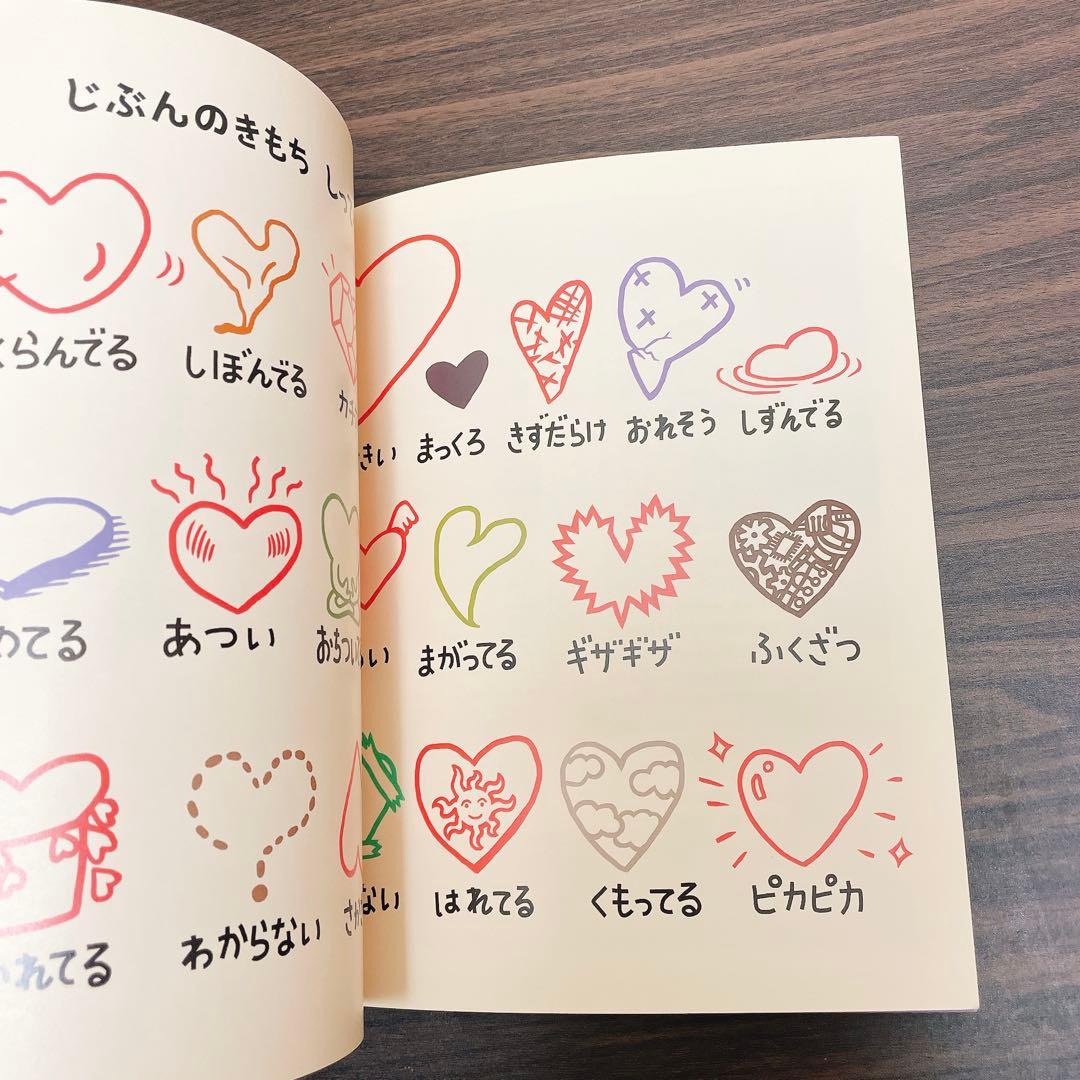 じぶんのきもち しって
くらんでる しぼんでる カチ
きい まっくろ きずだらけ おれそう しずんでる
めてる あつい おちつい
い まがってる ギザギザ ふくざつ
れてる わからない さか
ない はれてる くもってる ピカピカ